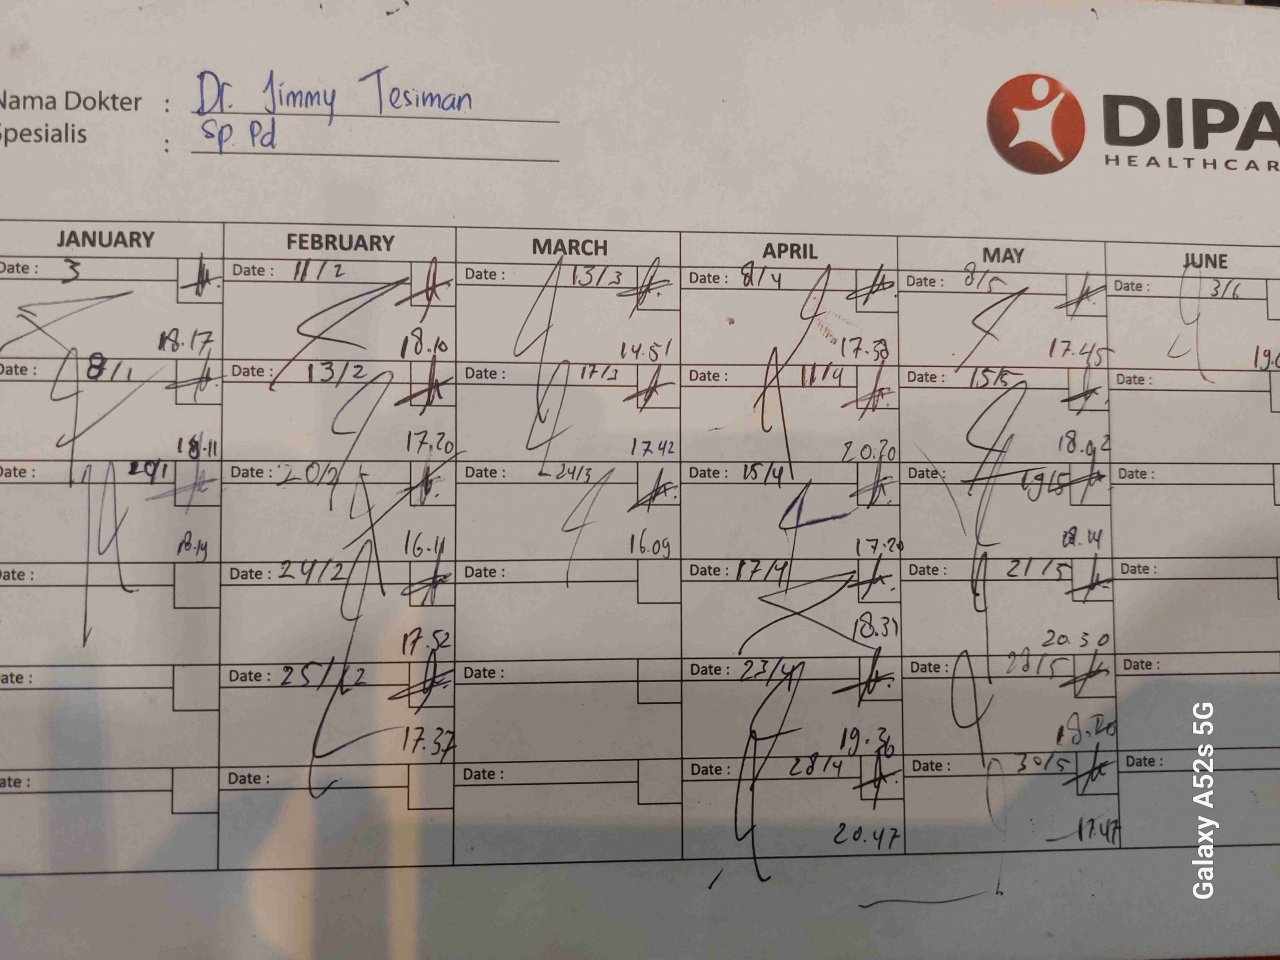 Nama Dokter : Dr. Jimmy Tesiman
Spesialis : Sp. Pd
DIPA
HEALTHCAR
JANUARY FEBRUARY MARCH APRIL MAY JUNE
Date : 3 Date : 11/2 Date : 13/3 Date : 8/4 Date : 8/5 Date : 3/6
18.17 18.10 14.51 17.38 17.45
Date : 8/1 Date : 13/2 Date : 17/3 Date : 11/4 Date : 15/5 Date :
18.11 17.20 17.42 20.20 18.02
Date : 20/1 Date : 20/2 Date : 24/3 Date : 15/4 Date : 19/5 Date :
18.14 16.11 16.09 17.20 18.14
Date : Date : 24/2 Date : Date : 17/4 Date : 21/5 Date :
17.52 18.31 20.30
Date : Date : 25/2 Date : Date : 23/4 Date : 28/5 Date :
17.37 19.36 18.20
Date : Date : Date : Date : 28/4 Date : 30/5 Date :
20.47 17.47
Galaxy A52s 5G